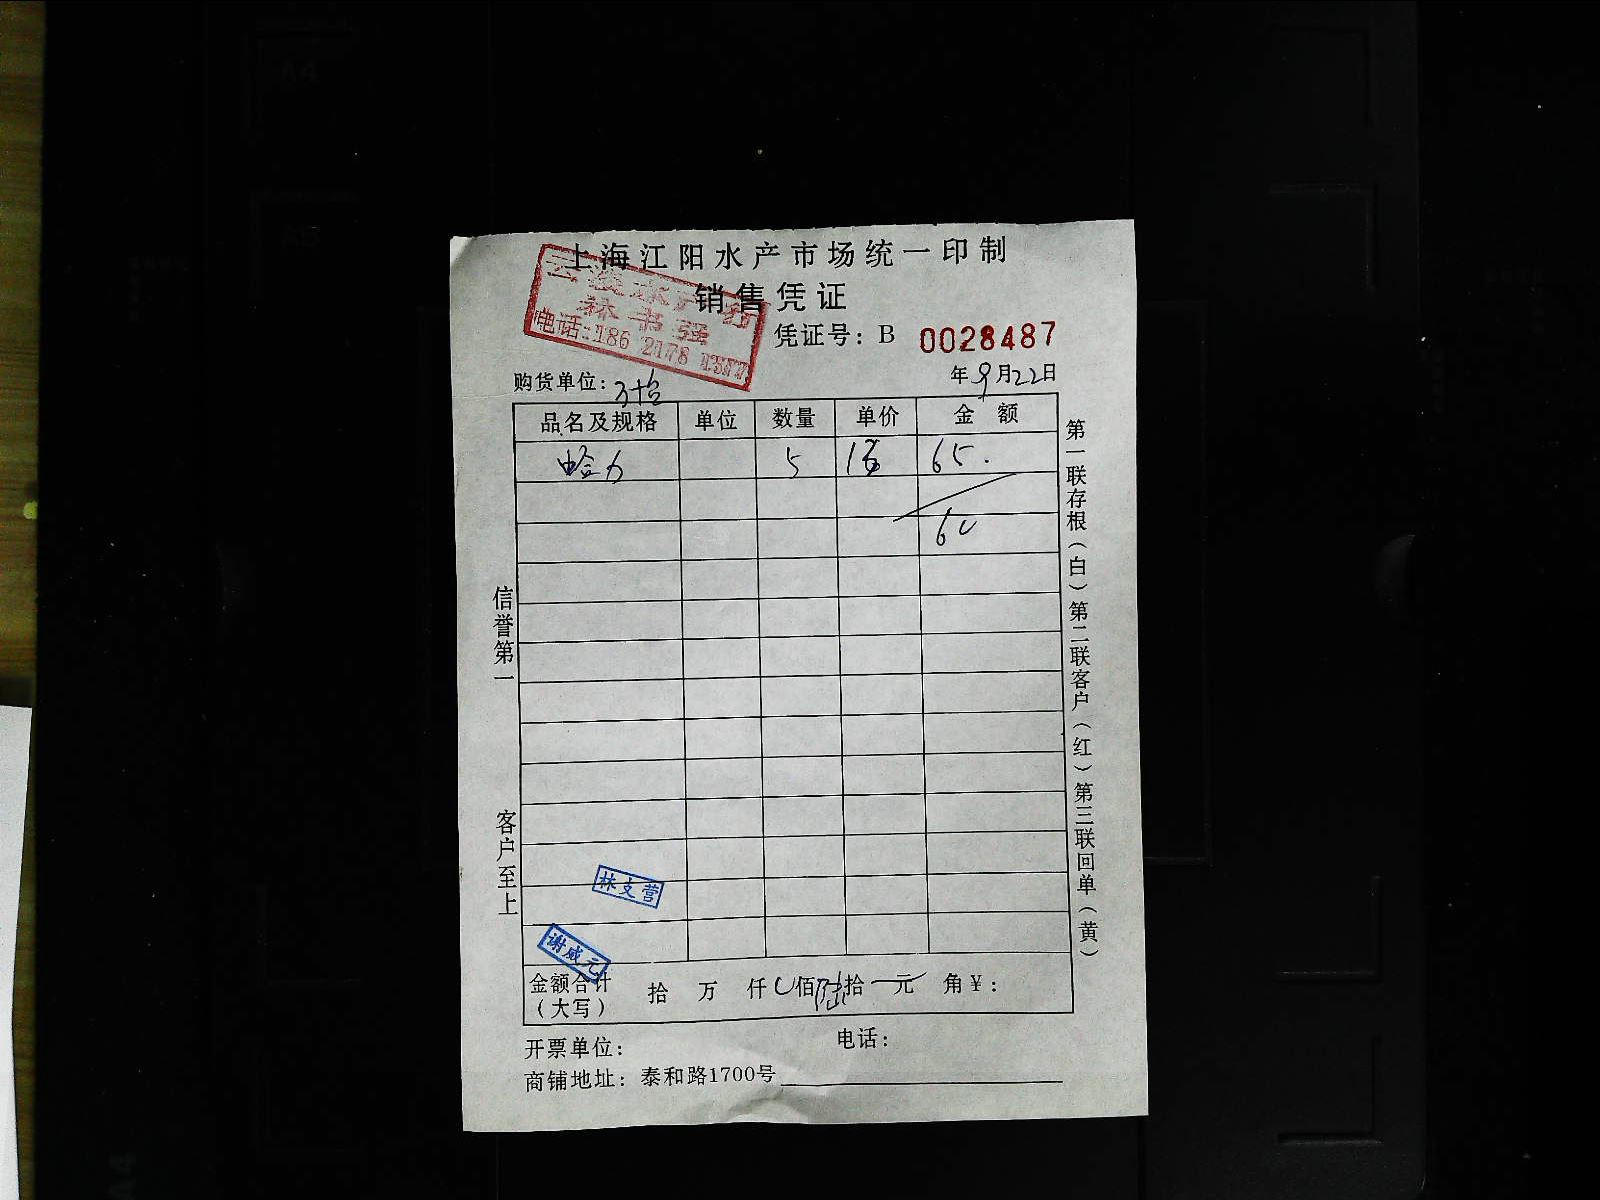 上海江阳水产市场统一印制
销售凭证
林书强
电话:186 2178
凭证号：B 0028487
购货单位：
年9月22日
品名及规格 单位 数量 单价 金额
蛤力 5 65.
60
信誉第一
客户至上
林支营
谢咸元
金额合计（大写） 拾 万 仟 佰陆拾 元 角￥：
开票单位： 电话：
商铺地址：泰和路1700号
第一联存根（白）第二联客户（红）第三联回单（黄）